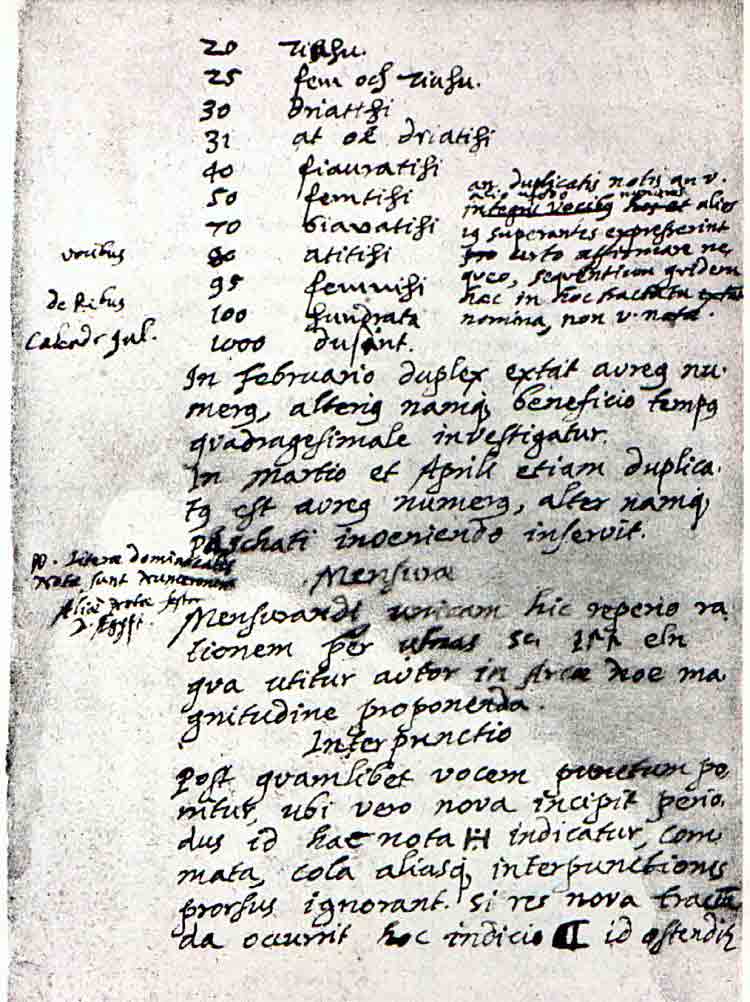 20 tiuhu.
25 fem och tiuhu.
30 driatihi
31 at ok driatihi
40 fiauratihi
50 femtihi
70 siavatihi
80 atitihi
95 femnihi
100 hundrata
1000 dusant.
an duplicatis notis an v.
alio modo numeros
integris vocibus hos et alios
ię superantes expresserint
pro certo affirmare ne
queo, sequentium quidem
hæc in hoc tractatu extant
nomina, non v. notæ.
vocibus
de Rebus
Calend. Jul.
In Februario duplex extat avreꝯ nu-
merꝯ, alteriꝯ namq, beneficio tempꝯ
quadragesimale investigatur.
In Martio et Aprili etiam duplica-
tꝯ est avreꝯ numerꝯ, alter namq,
Paschati inveniendo inservit.
Literæ dominicales
Notæ sunt
Aliæ notæ
Mensuræ
Mensurandi unicam hic reperio ra-
tionem per ulnas sc. ᛅᛚᚾ eln
qva utitur avtor in Arcæ Noe ma-
gnitudine proponenda.
Interpunctio
Post quamlibet vocem punctum po-
nitur, ubi vero nova incipit perio-
dus id hac nota indicatur, com-
mata, cola aliasq, interpunctiones
prorsus ignorant. Si res nova tractan
da occurrit hoc indicio id ostendit